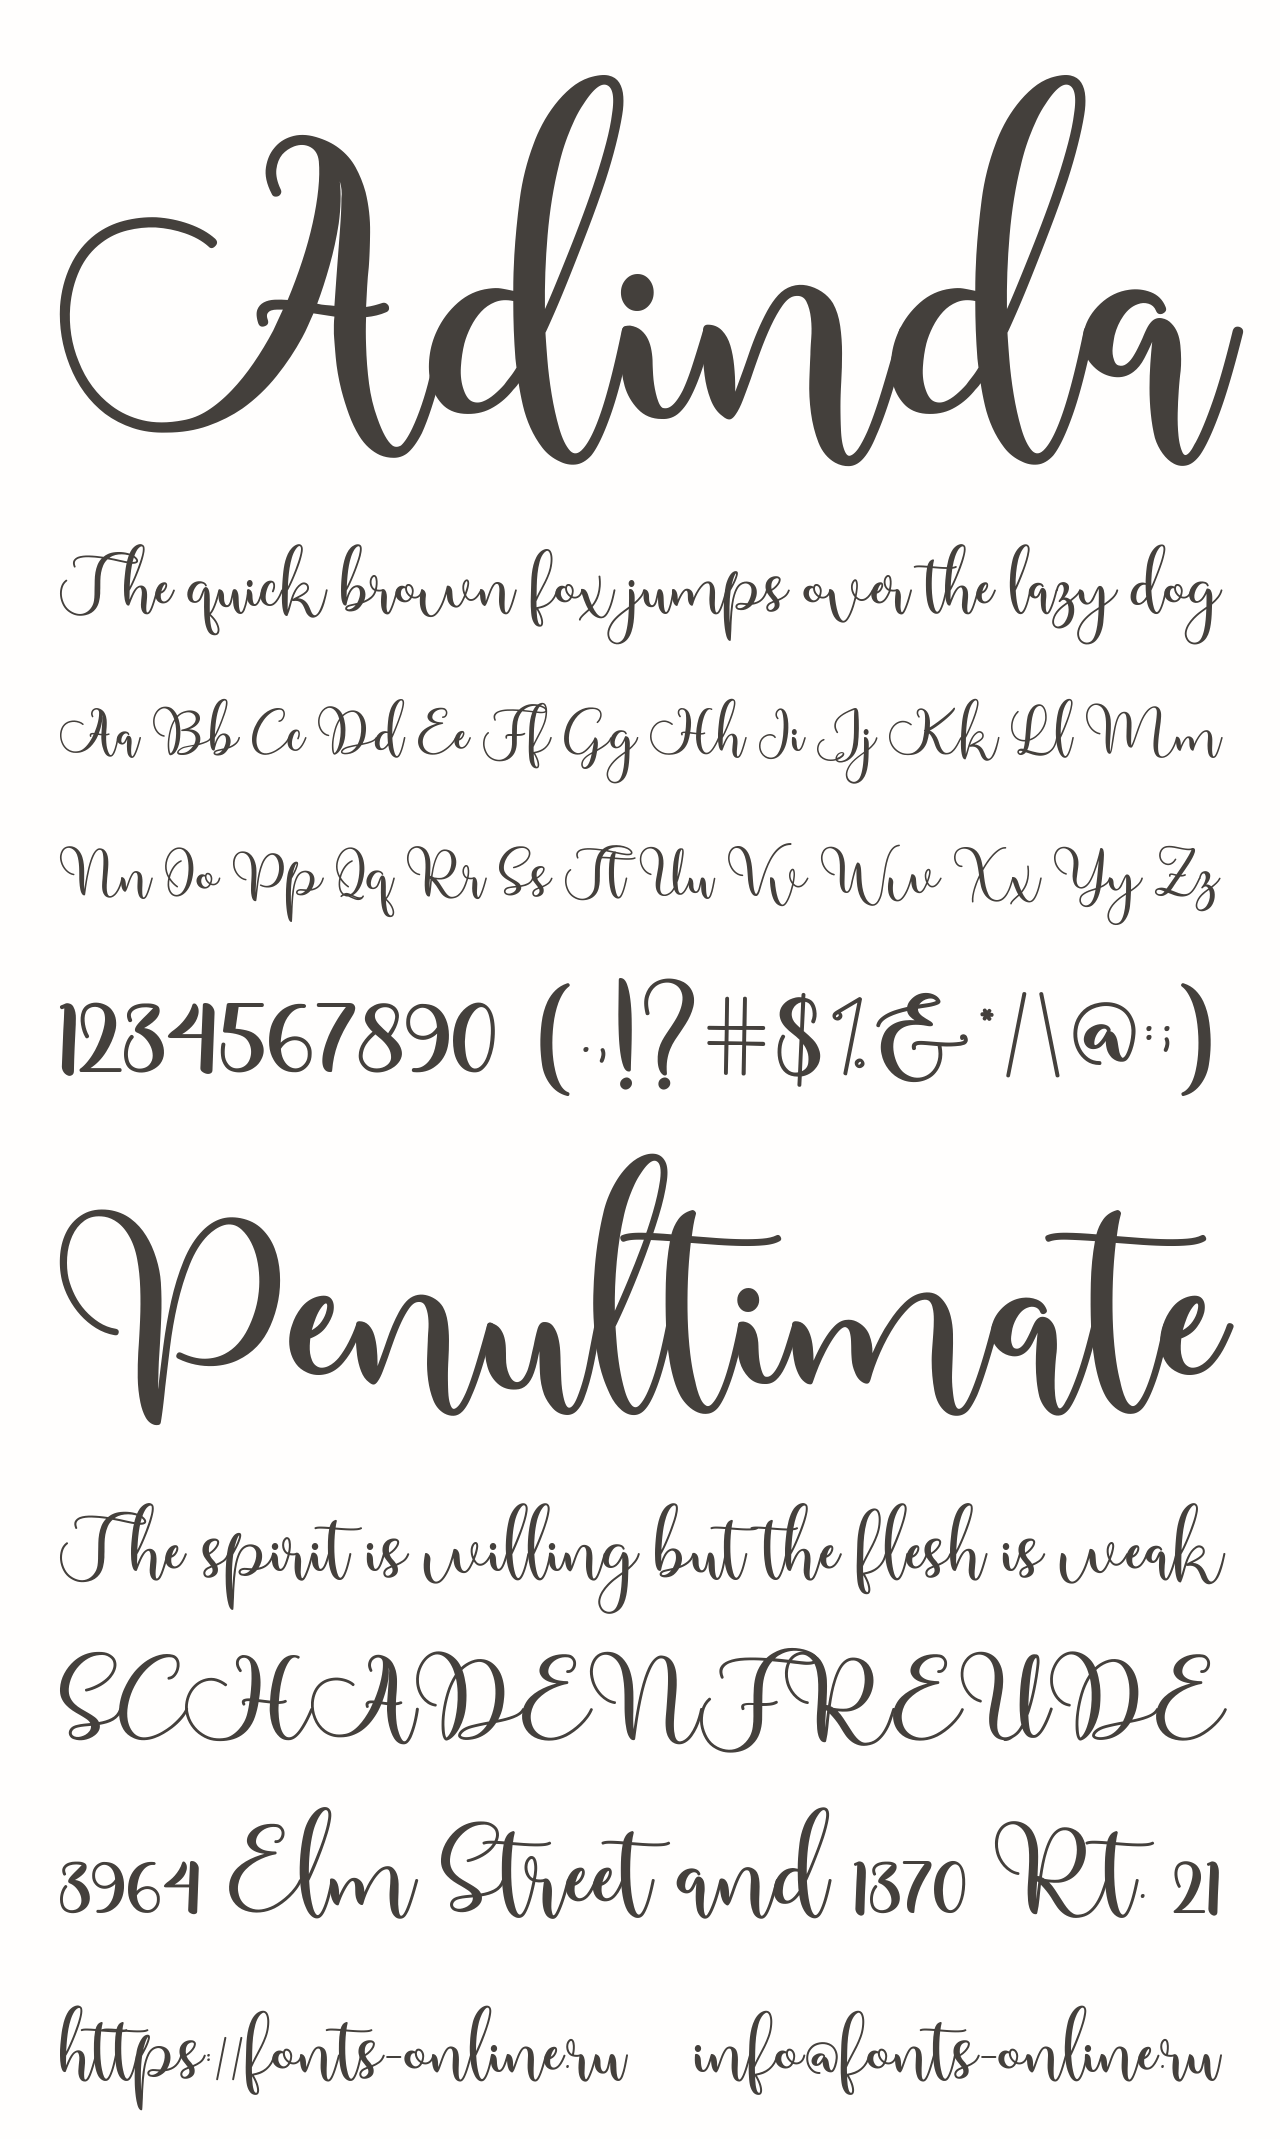 Adinda
The quick brown fox jumps over the lazy dog
Aa Bb Cc Dd Ee Ff Gg Hh Ii Jj Kk Ll Mm
Nn Oo Pp Qq Rr Ss Tt Uu Vv Ww Xx Yy Zz
1234567890 (.,!?#$%&*/\@:;)
Penultimate
The spirit is willing but the flesh is weak
SCHADENFREUDE
3964 Elm Street and 1370 Rt. 21
https://fonts-online.ru info@fonts-online.ru